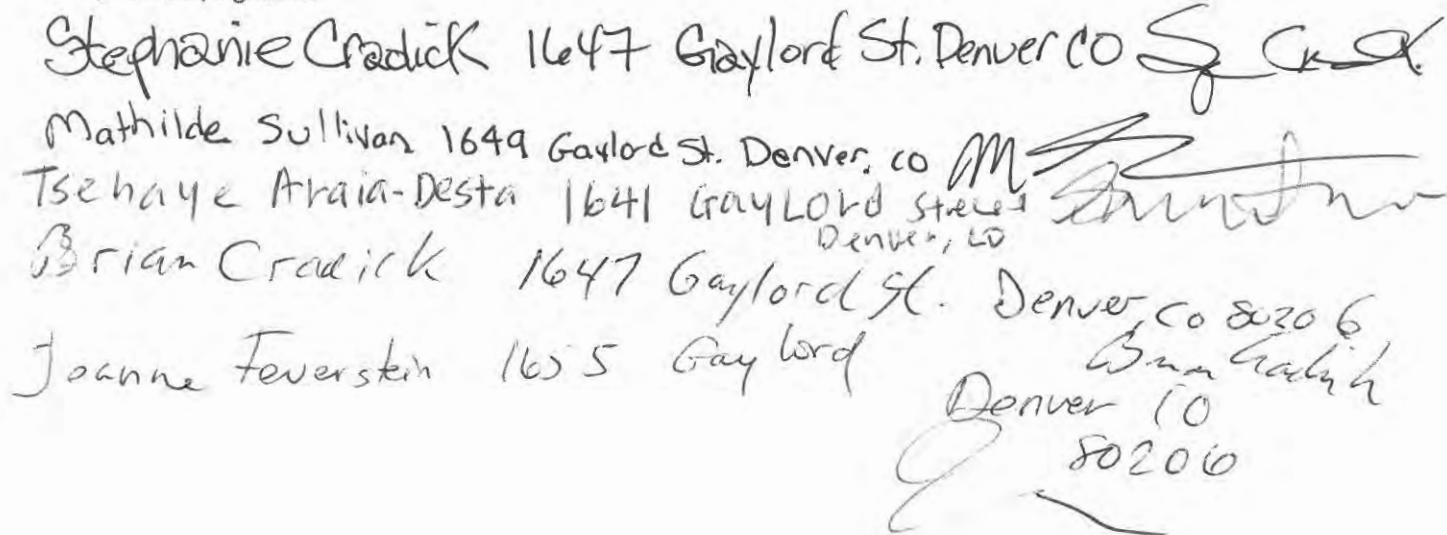 Stephanie Cradick 1647 Gaylord St. Denver CO
Mathilde Sullivan 1649 Gaylord St. Denver, CO
Tsehaye Araia-Desta 1641 GayLord Street
Denver, CO
Brian Cradick 1647 Gaylord St. Denver, Co 80206
Brian Cradick
Joanne Feuerstein 1655 Gaylord
Denver CO
80206